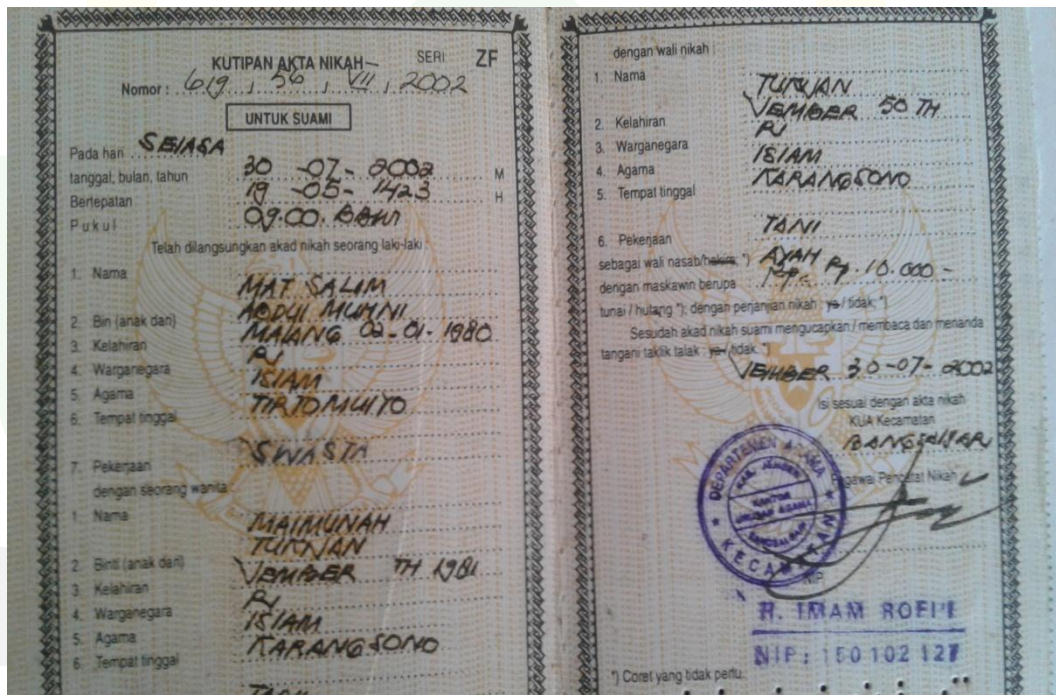 KUTIPAN AKTA NIKAH SERI ZF
Nomor : 619 , 56 , VII , 2002
UNTUK SUAMI
Pada hari SElASA
tanggal, bulan, tahun 30 - 07 - 2002 M
Bertepatan 19 - 05 - 1423 H
Pukul 09.00 BBWI
Telah dilangsungkan akad nikah seorang laki-laki :
1. Nama MAT SALIM
2. Bin (anak dari) ABDUl MU'INI
3. Kelahiran MAlANG 02-01-1980
4. Warganegara RI
5. Agama ISlAM
6. Tempat tinggal TIRTOMUlYO
7. Pekerjaan SWASTA
dengan seorang wanita
1. Nama MAIMUNAH
2. Binti (anak dari) TURJAN
3. Kelahiran JEMBER TH 1981
4. Warganegara RI
5. Agama ISlAM
6. Tempat tinggal KARANGSONO
dengan wali nikah :
1. Nama TURJAN
2. Kelahiran JEMBER 50 TH
3. Warganegara RI
4. Agama ISlAM
5. Tempat tinggal KARANGSONO
6. Pekerjaan TANI
sebagai wali nasab/hakim *) AYAH
dengan maskawin berupa Rp. 10.000 -
tunai / hutang *); dengan perjanjian nikah : ya / tidak *)
Sesudah akad nikah suami mengucapkan / membaca dan menanda
tangani taklik talak : ya / tidak *)
JEMBER 30-07-2002
Isi sesuai dengan akta nikah
KUA Kecamatan
BANGSALSARI
Pegawai Pencatat Nikah
DEPARTEMEN AGAMA
KAB. JEMBER
KANTOR
URUSAN AGAMA
BANGSALSARI
KECAMATAN
NIP.
H. IMAM ROFI'I
NIP : 150 102 127
*) Coret yang tidak perlu.